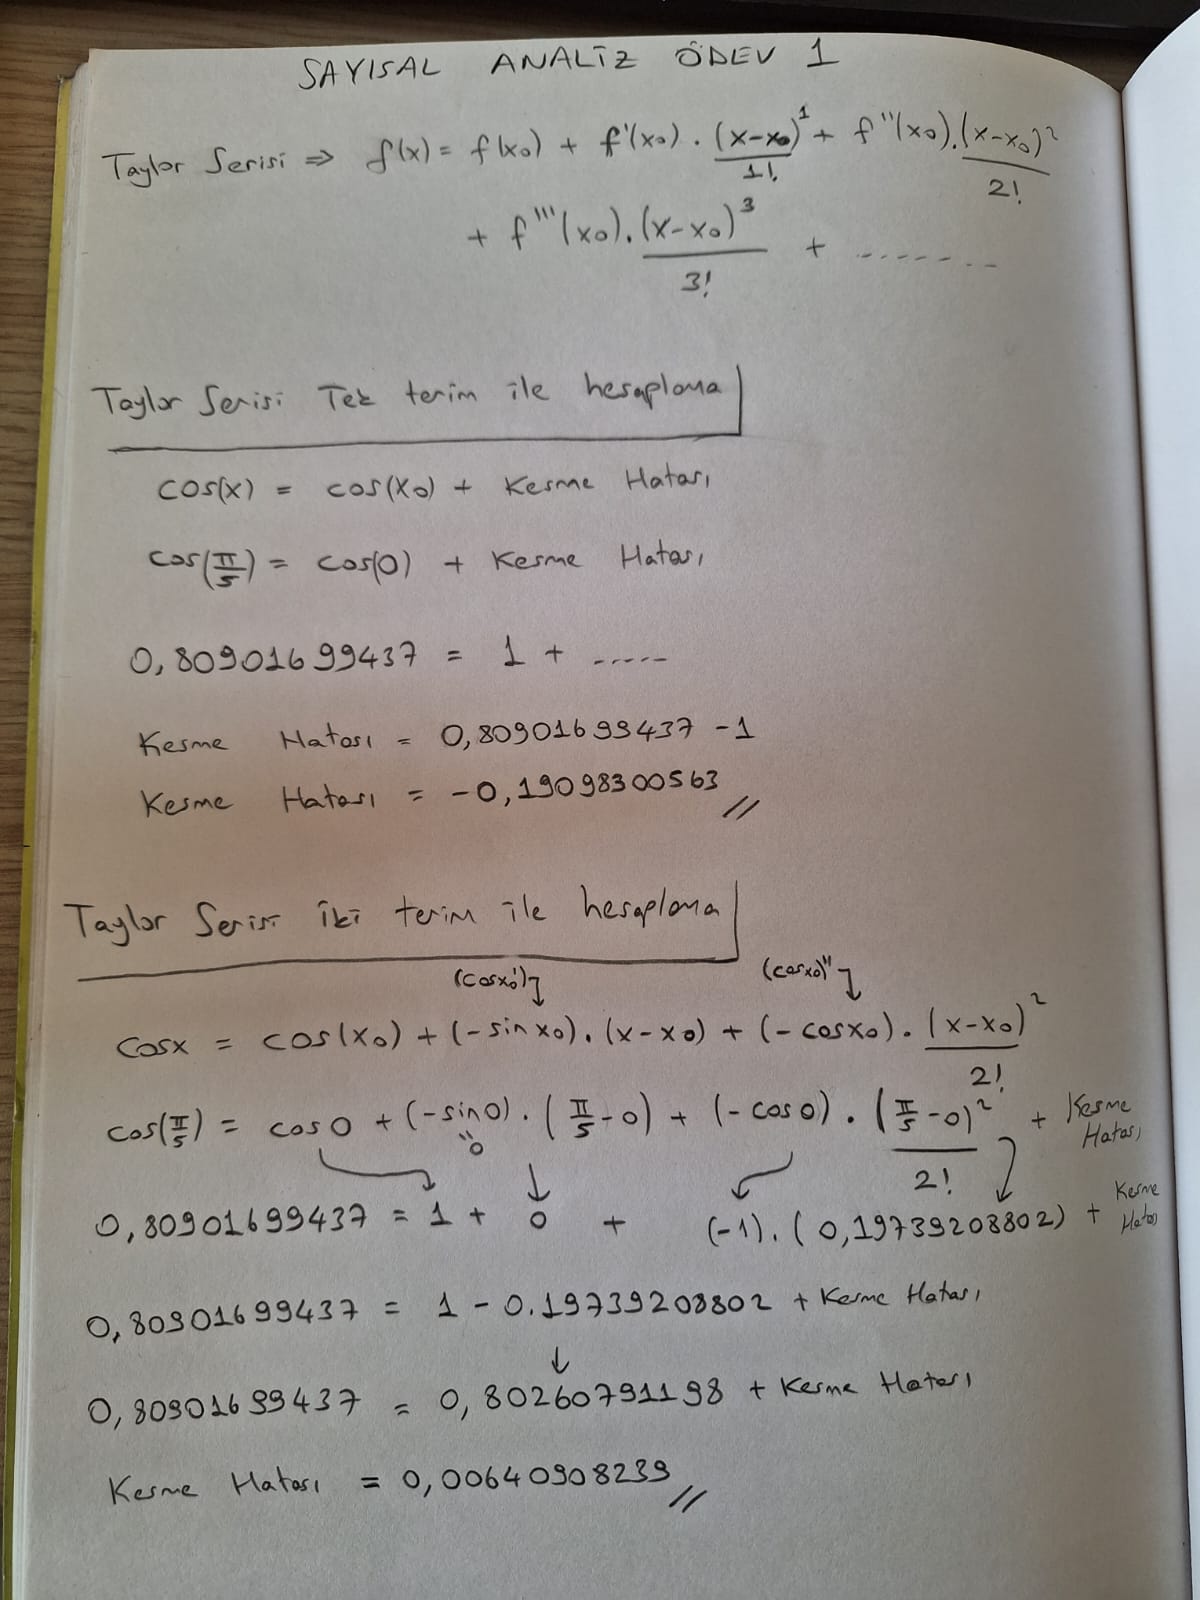 SAYISAL ANALİZ ÖDEV 1
Taylor Serisi ⇒ f(x) = f(x₀) + f'(x₀) . (x-x₀)¹/1! + f''(x₀).(x-x₀)²/2!
+ f'''(x₀).(x-x₀)³/3! + ........
Taylor Serisi Tek terim ile hesaplama
cos(x) = cos(x₀) + Kesme Hatası
cos(π/5) = cos(0) + Kesme Hatası
0,80901699437 = 1 + .....
Kesme Hatası = 0,80901699437 -1
Kesme Hatası = -0,19098300563 //
Taylor Serisi İki terim ile hesaplama
(cosx₀)' ↴ (cosx₀)'' ↴
Cosx = cos(x₀) + (-sinx₀).(x-x₀) + (-cosx₀) . (x-x₀)²/2!
cos(π/5) = cos0 + (-sin0) . (π/5-0) + (-cos0) . (π/5-0)²/2! + Kesme Hatası
"0
0,80901699437 = 1 + 0 + (-1).(0,19739208802) + Kesme Hatası
0,80901699437 = 1 - 0.19739208802 + Kesme Hatası
↓
0,80901699437 = 0,80260791198 + Kesme Hatası
Kesme Hatası = 0,00640908239 //